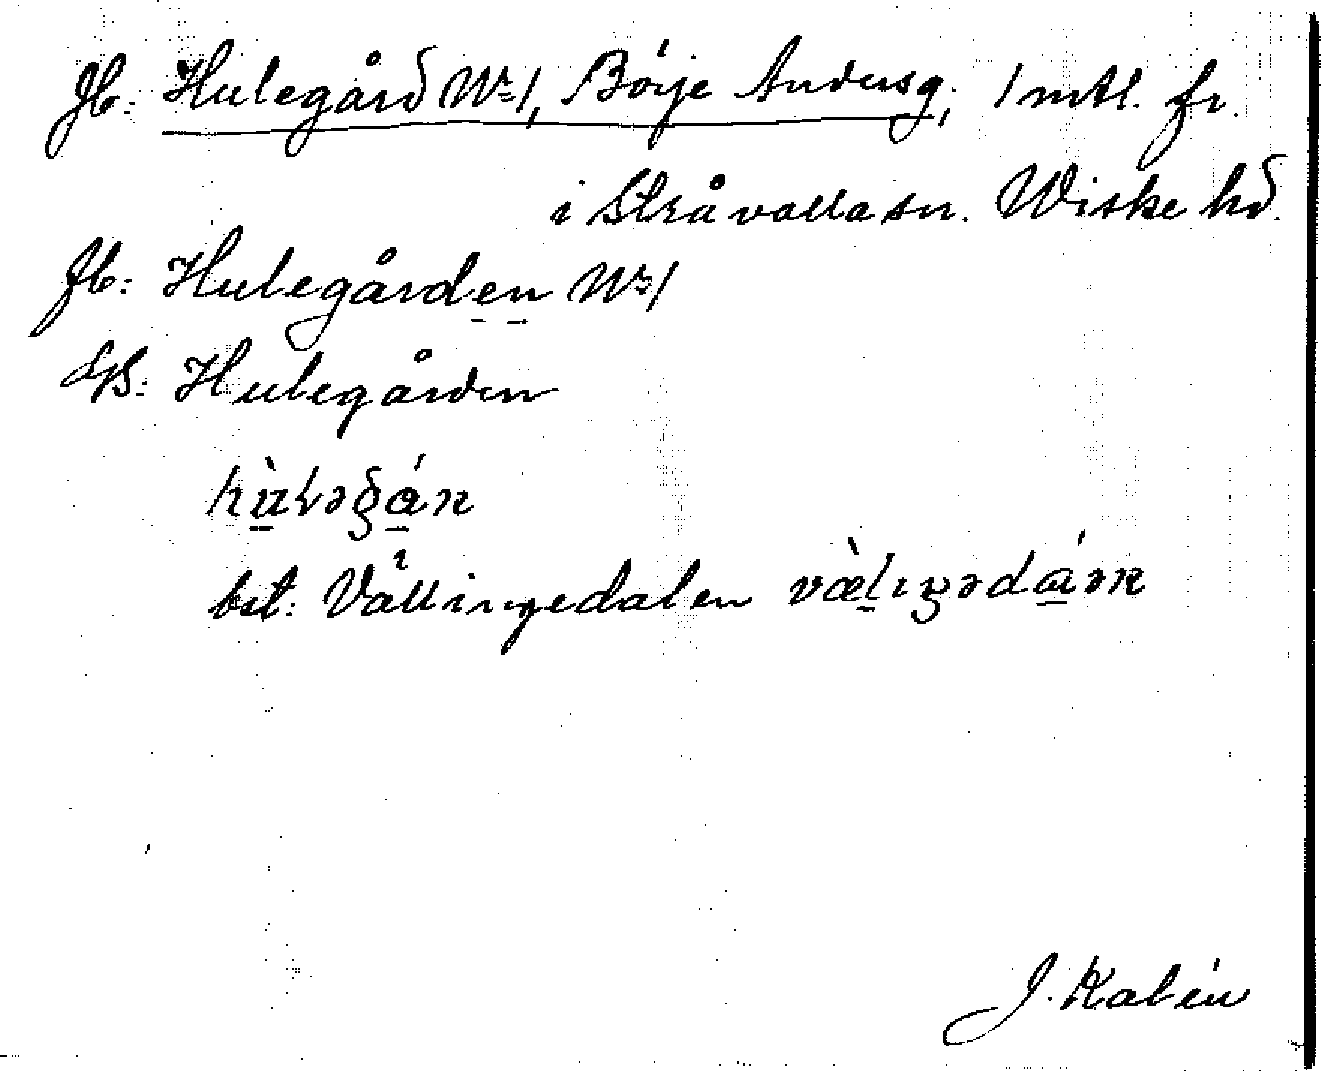 Jb: Hulegård Nr 1, Börje Andersg., 1 mtl. fr.
i Stråvalla sn. Wiske hd.
Jb: Hulegården Nr 1
Hulegården
hùləgán
bet: Vällingedalen væ̀lıŋədáən
J. Kalén